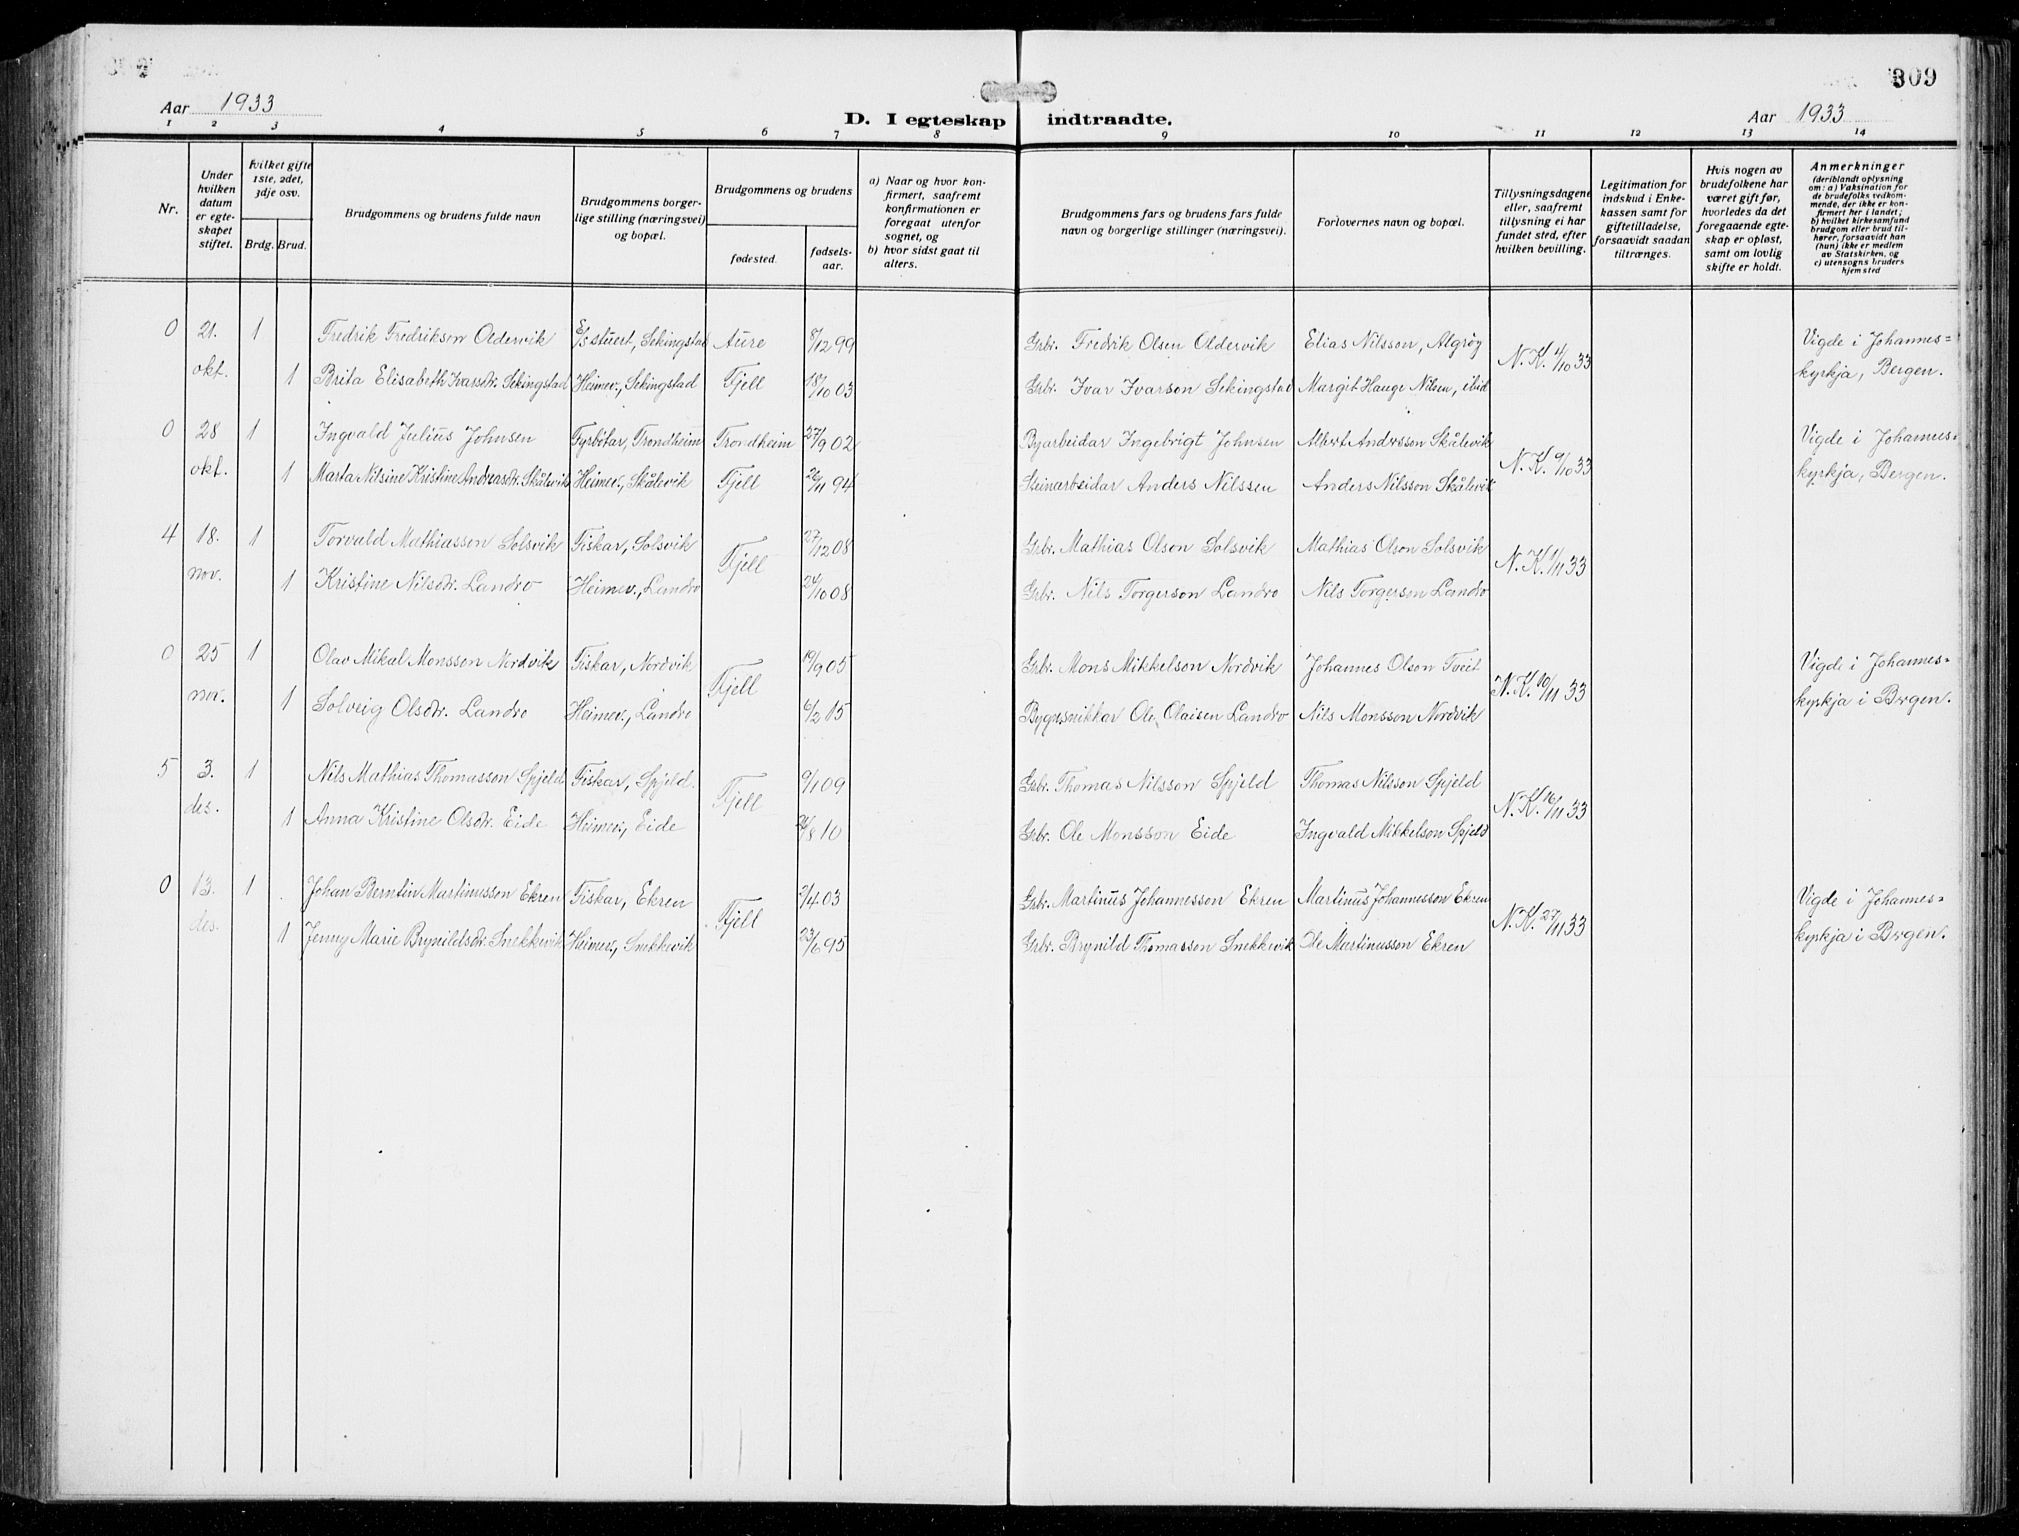 309
Aar 1933
D. I egteskap indtraadte.
Aar 1933
1 2 3 4 5 6 7 8 9 10 11 12 13 14
Nr.
Under hvilken datum er egteskapet stiftet.
Hvilket gifte 1ste, 2det, 3dje osv.
Brdg. Brud.
Brudgommens og brudens fulde navn
Brudgommens borgerlige stilling (næringsvei) og bopæl.
Brudgommens og brudens
fødested.
fødselsaar.
a) Naar og hvor konfirmert, saafremt konfirmationen er foregaat utenfor sognet, og
b) hvor sidst gaat til alters.
Brudgommens fars og brudens fars fulde navn og borgerlige stillinger (næringsvei).
Forlovernes navn og bopæl.
Tillysningsdagene eller, saafremt tillysning ei har fundet sted, efter hvilken bevilling.
Legitimation for indskud i Enkekassen samt for giftetilladelse, forsaavidt saadan tiltrænges.
Hvis nogen av brudefolkene har været gift før, hvorledes da det foregaaende egteskap er opløst, samt om lovlig skifte er holdt.
Anmerkninger (deriblandt oplysning om: a) Vaksination for de brudefolks vedkommende, der ikke er konfirmert her i landet; b) hvilket kirkesamfund brudgom eller brud tilhører, forsaavidt han (hun) ikke er medlem av Statskirken, og c) utensogns bruders hjemsted
0 21. 1 Fredrik Fredriksen Oldervik E/S stuert, Sekingstad Aure 8/12 99 Grbr. Fredrik Olsen Oldervik Elias Nilsson, Algrøy N.K. 4/10 33 Vigde i Johannes=
okt. 1 Brita Elisabeth Ivarsdr. Sekingstad Heimev., Sekingstad Fjell 18/10 03 Grbr. Ivar Ivarson Sekingstad Margit Hauge Nilsen, ibid kyrkja, Bergen.
0 28 1 Ingvald Julius Johnsen Fyrbøtar, Trondheim Trondheim 27/9 02 Byarbeidar Ingebrigt Johnsen Albert Andersson Skålevik N.K. 9/10 33 Vigde i Johannes=
okt. 1 Marta Nilsine Kristine Andreasdr. Skålevik Heimev., Skålevik Fjell 26/11 94 Steinarbeidar Anders Nilssen Anders Nilsson Skålevik kyrkja, Bergen.
4 18. 1 Torvald Mathiassen Solsvik Fiskar, Solsvik Fjell 27/12 08 Grbr. Mathias Olson Solsvik Mathias Olson Solsvik N.K. 1/11 33
nov. 1 Kristine Nilsdr. Landro Heimev., Landro 24/10 08 Grbr. Nils Torgerson Landro Nils Torgerson Landro
0 25 1 Olav Mikal Monsson Nordvik Fiskar, Nordvik Fjell 19/9 05 Grbr. Mons Mikkelson Nordvik Johannes Olson Tveit N.K. 10/11 33 Vigde i Johannes=
nov. 1 Solveig Olsdr. Landro Heimev., Landro 6/2 15 Bygnsnikkar Ole Olaisen Landro Nils Monsson Nordvik kyrkja i Bergen.
5 3. 1 Nils Mathias Thomasson Spjeld Fiskar, Spjeld. Fjell 9/1 09 Grbr. Thomas Nilsson Spjeld Thomas Nilsson Spjeld N.K. 16/11 33
des. 1 Anna Kristine Olsdr. Eide Heimev., Eide /8 10 Grbr. Ole Monsson Eide Ingvald Mikkelson Spjeld
0 13. 1 Johan Berntin Martinusson Ekren Fiskar, Ekren Fjell 2/4 03 Grbr. Martinus Johannesson Ekren Martinus Johannesson Ekren N.K. 27/11 33 Vigde i Johannes=
des. 1 Jenny Marie Brynildsdr. Snekkevik Heimev., Snekkevik 23/6 95 Grbr. Brynild Thomassen Snekkevik Ole Martinusson Ekren kyrkja i Bergen.